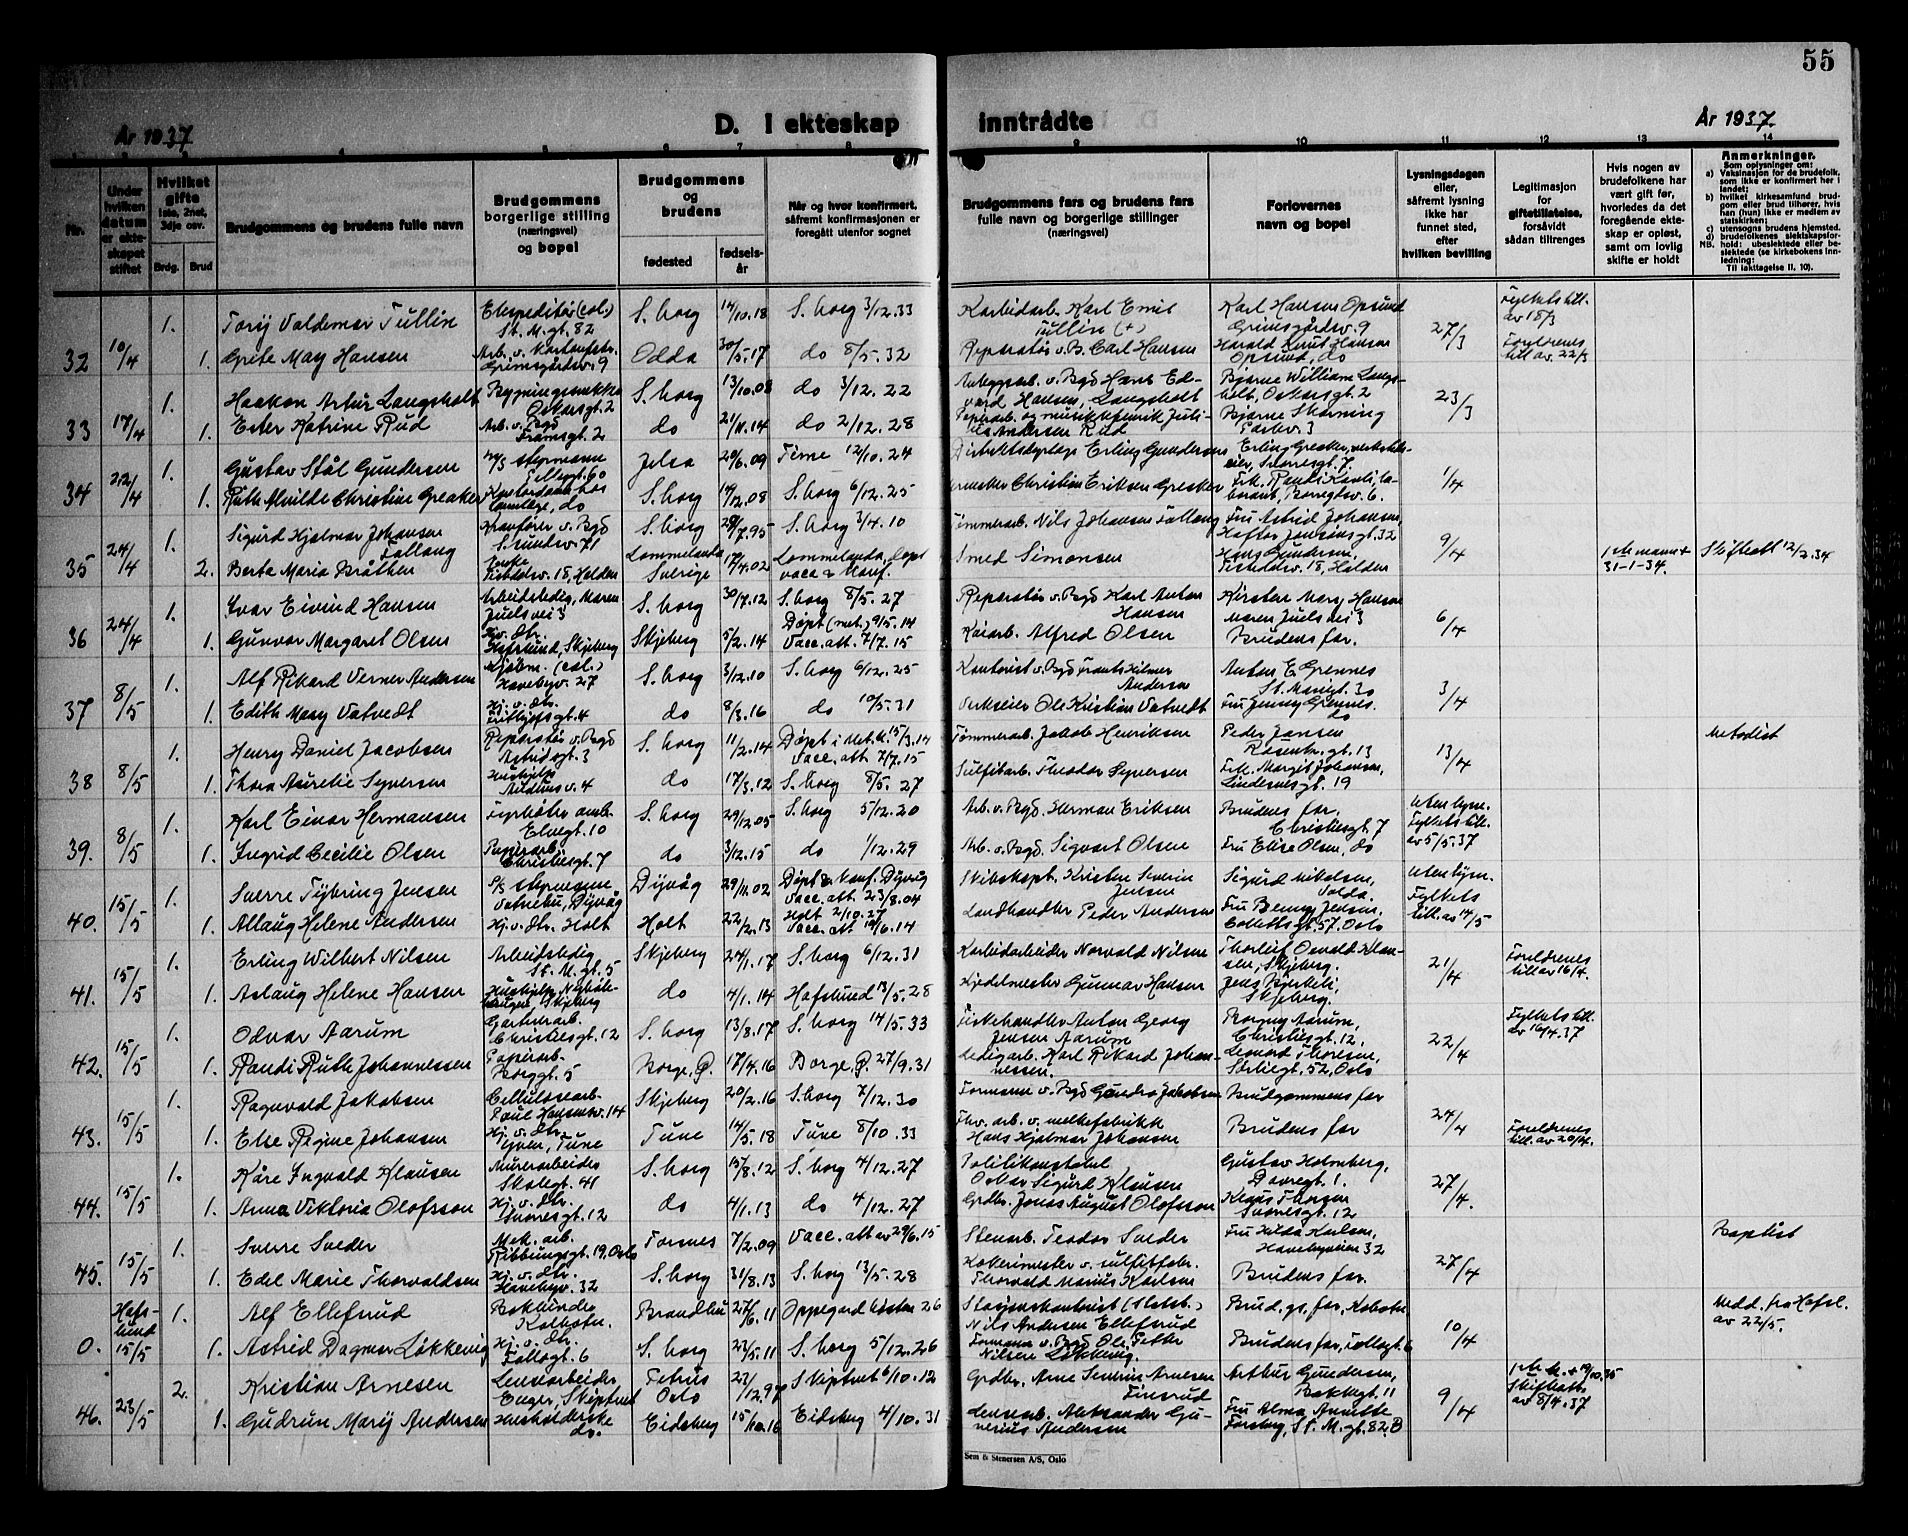 55
År 1937
D. I ekteskap inntrådte
År 1937.
1 2 3 4 5 6 7 8 9 10 11 12 13 14
Nr.
Under hvilken datum er ekteskapet stiftet
Hvilket gifte
1ste, 2net, 3dje osv.
Brdg. Brud
Brudgommens og brudens fulle navn
Brudgommens borgerlige stilling (næringsvei) og bopel
Brudgommens og brudens
fødested
fødsels-år
Når og hvor konfirmert, såfremt konfirmasjonen er foregått utenfor sognet
Brudgommens fars og brudens fars fulle navn og borgerlige stillinger (næringsvei)
Forlovernes navn og bopel
Lysningsdagen eller, såfremt lysning ikke har funnet sted, efter hvilken bevilling
Legitimasjon for giftetillatelse, forsåvidt sådan tiltrenges
Hvis nogen av brudefolkene har vært gift før, hvorledes da det foregående ekteskap er opløst, samt om lovlig skifte er holdt
Anmerkninger.
Som oplysninger om:
a) Vaksinasjon for de brudefolk, som ikke er konfirmert her i landet;
b) hvilket kirkesamfund brudgom eller brud tilhører, hvis han (hun) ikke er medlem av statskirken;
c) utensogns brudens hjemsted.
d) brudefolkenes slektskapsforhold: ubeslektede eller beslektede (se kirkebokens innledning:
NB. Til iakttagelse II. 10).
1. Tory Valdemar Tullin Ekspeditør (col.) St. M. gt. 82 S. borg 14/10.18 S. borg 3/12.33 Karbidarb. Karl Emil Tullin (+) Karl Hansen Opsund Grimsgårdsv. 9 Fylkets till. av 18/3
32 10/4 1. Grete May Hansen Grimsgårdsv. 9 Odda 30/5.17 do 8/5.32 Reparatør v. B. Carl Hansen Harald Hansen Opsund, do 27/3 Foreldrenes till. av 22/3
1. Haakon Artur Langsholt Oskarsgt. 2 S. borg 13/10.08 do 3/12.22 v. Bgd Hans Edvard Hansen, Langsholt Bjarne William Langsholt, Oskarsgt. 2
33 17/4 1. Ester Katrine Rud Arb. v. Bgd Framsgt. 2 do 21/11.14 do 2/12.28 Papirarb. og Julius Andersen Rud Bjarne 23/3
1. Gustav Stål Gundersen Tellesgt. 60 Jelsa 20/6.09 Time 12/10.24 Erling Gundersen Erling Greaker, Sverresgt. 7.
34 22/4 1. Ruth Alvilde Christine Greaker do S. borg 14/12.08 S. borg 6/12.25 Christian Eriksen Greaker Frk. Randi Borregtsv. 6. 1/4
1. Sigurd Hjalmar Johansen Fallang Kranfører v. Bgd S. sundsv. 71 S. borg 29/7.95 S. borg 3/4.10 Tømmerarb. Nils Johansen Fallang Fru Astrid Johansen, Jensensgt. 32
35 24/4 2. Berta Maria Bråthen Tistedalsv. 18, Halden Lommelanda Sverige 17/4.02 Lommelanda, døpt vacc & konf. Smed Simonsen Hans Gundersen, Tistedalsv. 18, Halden 9/4 1ste mann + 31-1-34. Skifteatt 12/2.34
1. Ivar Eivind Hansen Arbeidsledig, Maren Juels vei 3 S. borg 30/7.12 S. borg 8/5.27 Reparatør v. Bgd Karl Anton Hansen Kirsten Mary Hansen Maren Juels vei 3
36 24/4 1. Gunvor Margaret Olsen Hj. v. dtr. Hafslund, Skjeberg Skjeberg 5/2.14 Døpt (met.) 9/5.14 Vacc. att. 7/7.15 Kaiarb. Alfred Olsen Brudens far. 6/4
1. Alf Rikard Verner Andersen (col.) Havebyv. 27 S. borg 3/12.10 S. borg 6/12.25 Kontorist v. Bgd Frants Hilmer Andersen Anton E. Grennes St. Mariegt. 30
37 8/5 1. Edith Mary Vatvedt Hj. v. dtr. Fritjofsgt. 4 do 8/3.16 do 10/5.31 Verkseier Ole Kristian Vatvedt Fru Jenny Grennes. do 3/4
1. Henry Daniel Jacobsen Reparatør v. Bgd Astridsgt. 3 S. borg 11/2.14 Døpt i Met. k. 15/3.14 Vacc. att 7/7.15 Tømmerarb. Jakob Henriksen Peder Jansen Rosenkr. gt. 13 Metodist
38 8/5 1. Thora Aurelie Syversen Hushjelp v. 4 do 17/3.12 S. borg 8/5.27 Sulfitarb. Theodor Syversen Frk. Margit Johansen, Lindemsgt. 19 13/4
1. Karl Einar Hermansen Fyrbøter amb. Elvegt. 10 S. borg 29/12.05 S. borg 5/12.20 Arb. v. Bgd. Herman Eriksen Brudens far. Christiesgt. 7 Uten lysn. Fylkets till. av 5/5.37
39. 8/5 1. Ingrid Cecilie Olsen Papirarb. Christiesgt. 7 do 3/12.15 do 1/12.29 Arb. v. Bgd. Sigvart Olsen Fru Elise Olsen, do
1. Sverre Tybring Jensen S/S Dypvåg Dypvåg 29/11.02 Døpt & konf. Dypvåg Vacc. att 23/8.04 Skibskapt. Kristen Severin Jensen Sigurd Nikolsen, Volda. Uten lysn. Fylkets till. av 14/5
40. 15/5 1. Allaug Helene Andersen Hj. v. dtr. Holt Holt 22/2.13 Holt 2/10.27 Vacc. att 19/6.14 Landhandler Peder Andersen Fru Benny Jensen, Collettsgt. 57, Oslo
1. Erling Wilbert Nilsen Arbeidsledig St. M. gt. 5 Skjeberg 24/1.17 S. borg 6/12.31 Karbidarbeider Norvald Nilsen Thorleif Osvald Hansen, Skjeberg.
41. 15/5 1. Aslaug Helene Hansen Hushjelp, Skjeberg do 4/1.14 Hafslund 13/5.28 Kjedelmester Gunnar Hansen Jens Bjerkeli, Skjeberg. 21/4 Foreldrenes till av 16/4.
1. Odvar Aarum Gartnerarb. Christiesgt. 12 S. borg 13/8.17 S. borg 14/5.33 Fiskehandler Anton Georg Jensen Aarum Borgny Aarum, Christiesgt. 12, Fylkets till. av 16/4.37
42. 15/5 1. Randi Ruth Johannessen Papirarb. Borggt. 5 Borge, Ø. 17/4.16 Borge, Ø. 27/9.31 Karl Rikard Johannessen. Leonard Thoresen, 52, Oslo 22/4
1. Ragnvald Jakobsen Cellulosearb. Paul Hansensv. 14 Skjeberg 20/2.16 S. borg 7/12.30 Formann v. Bgd Jakobsen Brudgommens far
43. 15/5 1. Else Regine Johansen Hj. v. dtr. Tune Tune 14/5.18 Tune 8/10.33 Fhv. arb. v. melkefabrikk Hans Hjalmar Johansen Brudens far 24/4 Foreldrenes till. av 20/4.
1. Kåre Ingvald Klausen Murerarbeider Skolegt. 41 S. borg 15/8.12 S. borg 4/12.27 Politikonstabel Oskar Sigurd Klausen Gustav Holmberg, Dovregt. 1.
44. 15/5 1. Anna Viktoria Olofsson Hj. v. dtr. Sverresgt. 12 do 4/1.13 do 4/12.27 Grdbr. Jonas August Olofsson Sverresgt. 12 27/4.
1. Sverre Sveder Mek. arb. Ribbungsgt. 19, Oslo Torsnes 7/2.09 Vacc. att av 29/6.15 Stenarb. Teodor Sveder Fru Hilda Karlsen, Havebyveien 32 Baptist
45. 15/5 1. Edel Marie Thorvaldsen Hj. v. dtr. Havebyv. 32 S. borg 31/8.13 S. borg 13/5.28 Kokerimester v. sulfitfabr. Thorvald Marius Karlsen Brudens far. 27/4
Hafslund 1. Alf Ellefsrud Bokbinder Kolbotn. Brandbu 27/6.11 Oppegård høsten 26 Stasjonskontorist (Statsb.) Nils Andersen Ellefsrud Brud. gs. far, Kolbotn Medd. fra Hafsl. av 22/5.
0. 15/5 1. Astrid Dagmar Løkkevig Hj. v. dtr. Follogt. 6 S. borg 23/5.11 S. borg 5/12.26 Formann v. Bgd Ole Petter Nilsen Løkkevig. Brudens far, Follogt. 6 10/4
2. Kristian Arnesen Enger, Skiptvet Petrus Oslo 23/12.97 Skiptvet 6/10.12 Grdbr. Arne Severin Arnesen Finsrud Arthur Gundersen, Bakkegt. 11 1ste h. + 19/10.35 Skifteatt av 8/4.37
46. 23/5 1. Gudrun Mary Andersen Husholderske do. Eidsberg 15/10.16 Eidsberg 4/10.31 Aleksander Gunerius Andersen Fru Alma Annette Forsberg, St. M. gt. 82.B 9/4
Sem & Stenersen A/S, Oslo